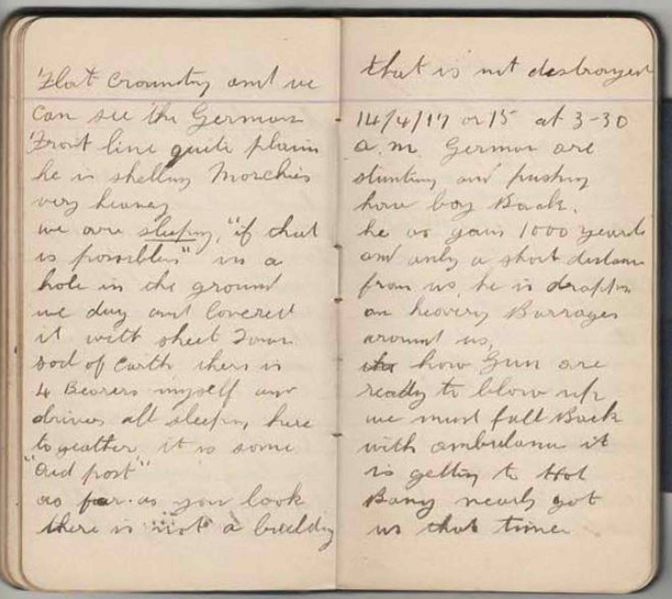 Flat Crountry and we
can see the German
Front line quite plain
he is shelling Morchies
very heavey
we are sleeping, "if that
is possibles" in a
hole in the ground
we dug and Coverest
it with sheet Iron
sod of Earth thers is
4 Bearers myself and
driver all sleepin, here
to geather, it is some
"Aid post"
as far. as you look
there is not a building
that is not destroyed
14/4/17 or 15 at 3-30
a.m. German are
stunting and pushing
how boy Back.
he as gain 1000 yards
and only a short distance
from us, he is
an heavery Barrages
around us,
how Gun are
ready to blow up
we must fall Back
with ambulance it
is getting to Hot
Bang nearly got
us that time